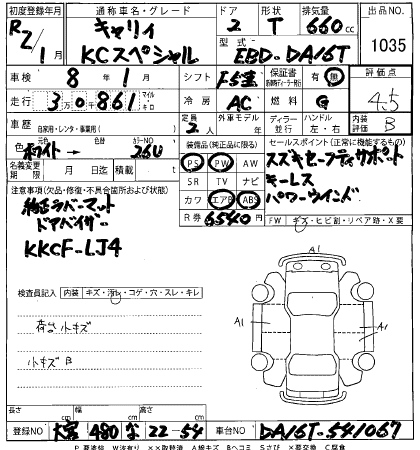 初度登録年月 通称車名・グレード ドア 形状 排気量 出品NO
R2/1 キャリィ KCスペシャル 2 T 660cc 1035
型式 EBD-DA16T
車検 8年1月 シフト F5速 保証書 有・無 評価点
走行 30,861 マイル キロ 冷房 AC 燃料 G 4.5
車歴 自家用・レンタ・事業用( ) 定員 2人 外車モデル年 ディーラー 並行 ハンドル 左・右 内装 B
色 ホワイト 色替 カラーNO 26U 装備品(純正品に限る) セールスポイント(正常に機能するもの)
名義変更期限 月 日 積載 t
PS PW AW
SR TV ナビ
カワ エアB ABS
R券 6540円
スズキセーフティサポート
キーレス
パワーウインド
注意事項(欠品・修復・不具合箇所および状態)
純正ラバーマット
ドアバイザー
KKCF-LJ4
FW キズ・ヒビ割・リペア跡・X要
検査員記入 内装 キズ・汚れ・コゲ・穴・スレ・キレ
荷台小キズ
小キズ B
A1
A1
A1
長さ cm 幅 cm 高さ cm
登録NO 大宮 480 な 22-54 車台NO DA16T-541067
P 要塗装 W波有り ××取替済 A線キズ Bヘコミ Sさび X要交換 C腐食